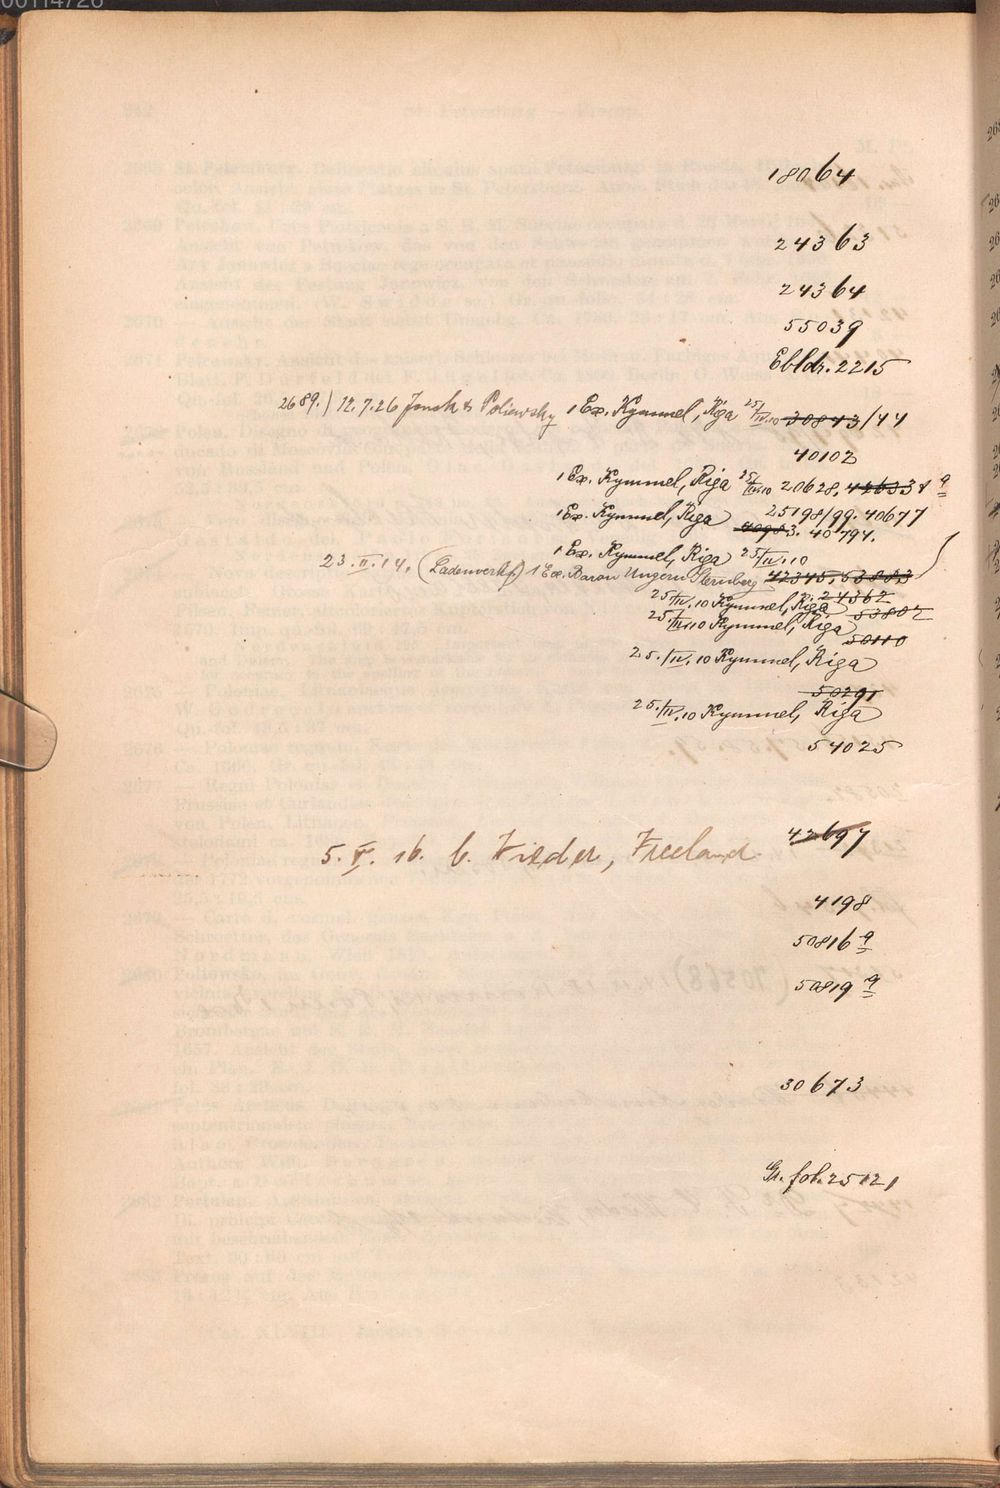 00114726
18064
24363
24364
55039
Ebldr. 2215
2689.) 12.7.26 & Poliewsky 1 Ex. Kymmel, Riga 25/IV.10 30843/44
40102
1 Ex. Kymmel, Riga 25/IV.10 20628, 42633 a
1 Ex. Kymmel, Riga 25198/99. 40677
40983. 40794.
1 Ex. Kymmel, Riga 25/IV.10
23.II.14. (Ladenverkf) 1 Ex. Baron Ungern Sternberg 42345, 63883
24362
25/IV.10 Kymmel, Riga 53802
25./IV.10 Kymmel, Riga
50110
25./IV.10 Kymmel, Riga
50291
25./IV.10 Kymmel, Riga
54025
42697
5.V.16. b.
4198
50816 a
50819 a
30673
Gr. fol. 25121